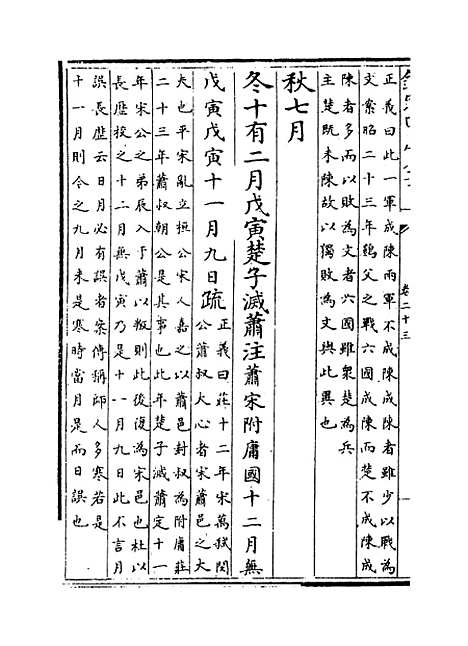 正義曰此一軍成陳兩軍不成陳成陳者雖少以戰為
文案昭二十三年鷄父之戰六國成陳而楚不成陳成
陳者多而以敗為文者六國雖衆楚為兵
主楚既未陳故以獨敗為文與此異也
秋七月
冬十有二月戊寅楚子滅蕭注蕭宋附庸國十二月無
戊寅戊寅十一月九日疏
正義曰莊十二年宋萬弑閔
公蕭叔大心者宋蕭邑之大
夫也平宋亂立桓公宋人嘉之以蕭邑封叔為附庸莊
二十三年蕭叔朝公是其事也此年楚子滅蕭定十一
年宋公之弟辰入于蕭以叛則此後復為宋邑也杜以
長歷校之十二月無戊寅乃是十一月九日此不言月
誤長歷云日月必有誤者案傳稱師人多寒若是
十一月則今之九月未是寒時當月是而日誤也
卷二十三